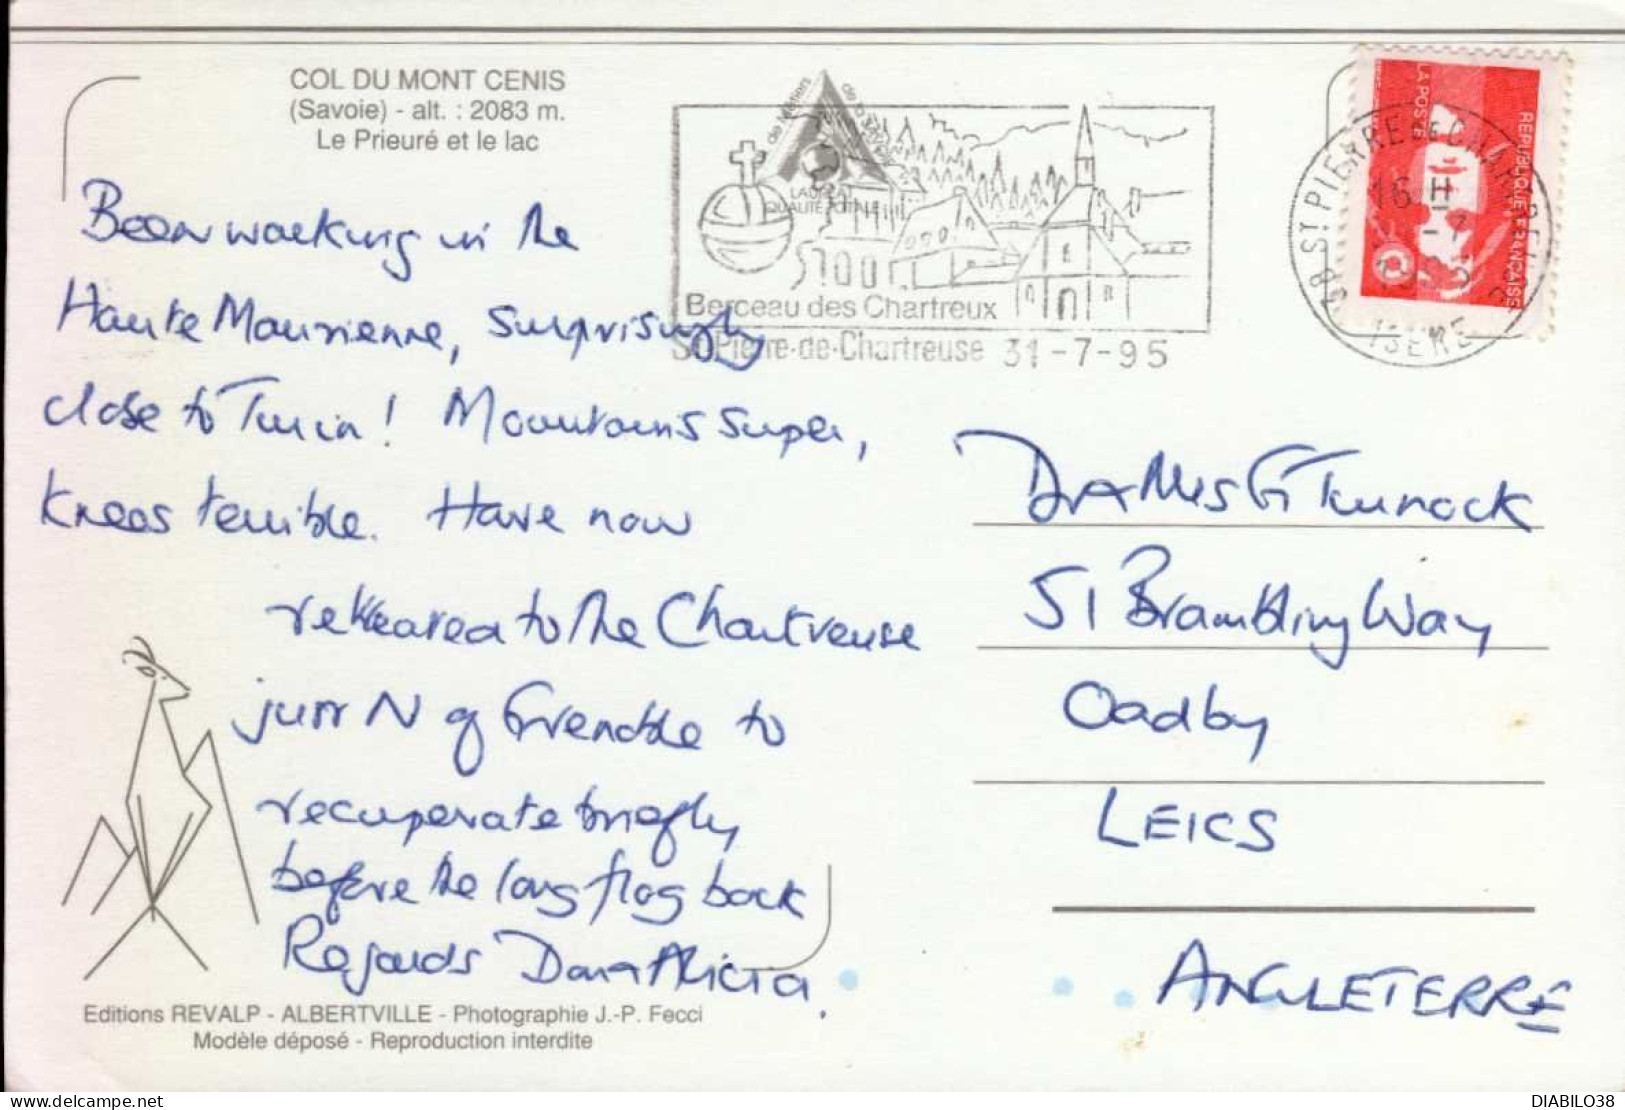 COL DU MONT CENIS
(Savoie) - alt. : 2083 m.
Le Prieuré et le lac
Been walking in the
Haute Maurienne, surprisingly
close to Turin! Mountains super,
knees terrible. Have now
retreated to the Chartreuse
just N of Grenoble to
recuperate briefly
before the long flog back
Regards Dan Alicia.
Editions REVALP - ALBERTVILLE - Photographie J.-P. Fecci
Modèle déposé - Reproduction interdite
Berceau des Chartreux
St Pierre-de-Chartreuse 31-7-95
LA POSTE
REPUBLIQUE FRANÇAISE
38 ST PIERRE DE CHARTREUSE
16 H
ISERE
DR & Mrs G Turnock
51 Brambling Way
Oadby
LEICS
ANGLETERRE
DIABILO38
delcampe.net